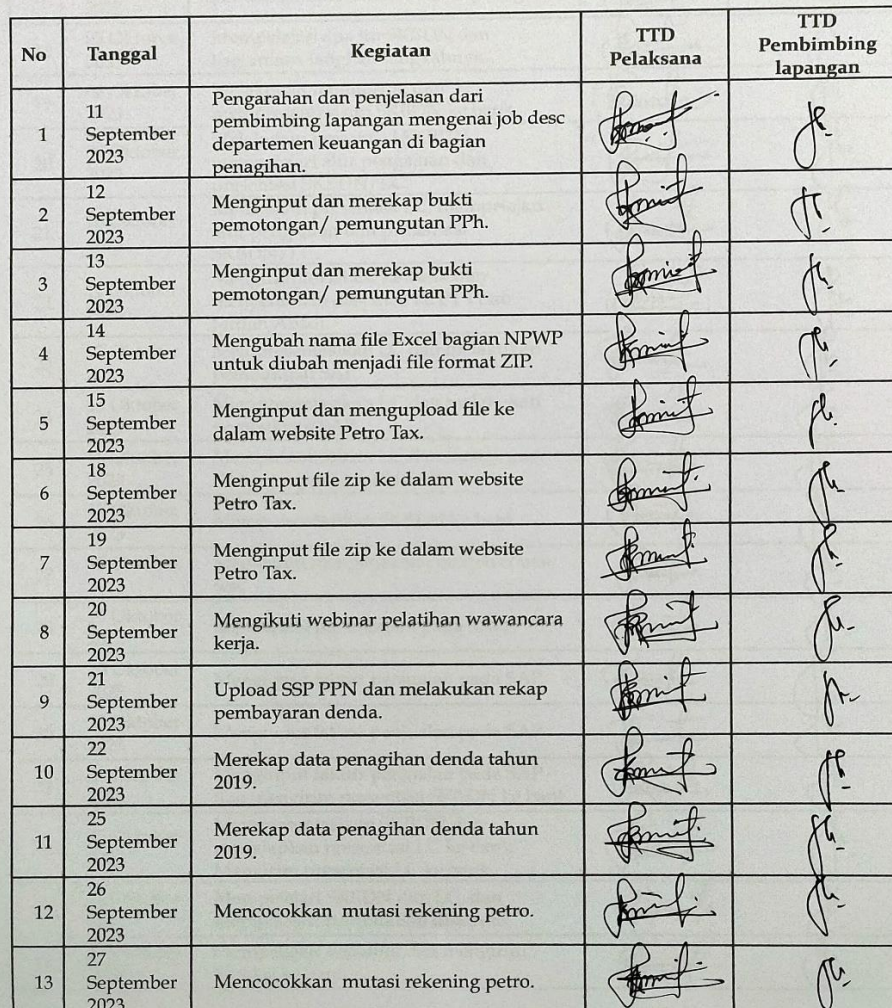 No Tanggal Kegiatan TTD Pelaksana TTD Pembimbing lapangan
1 11 September 2023 Pengarahan dan penjelasan dari
pembimbing lapangan mengenai job desc
departemen keuangan di bagian
penagihan.
2 12 September 2023 Menginput dan merekap bukti
pemotongan/ pemungutan PPh.
3 13 September 2023 Menginput dan merekap bukti
pemotongan/ pemungutan PPh.
4 14 September 2023 Mengubah nama file Excel bagian NPWP
untuk diubah menjadi file format ZIP.
5 15 September 2023 Menginput dan mengupload file ke
dalam website Petro Tax.
6 18 September 2023 Menginput file zip ke dalam website
Petro Tax.
7 19 September 2023 Menginput file zip ke dalam website
Petro Tax.
8 20 September 2023 Mengikuti webinar pelatihan wawancara
kerja.
9 21 September 2023 Upload SSP PPN dan melakukan rekap
pembayaran denda.
10 22 September 2023 Merekap data penagihan denda tahun
2019.
11 25 September 2023 Merekap data penagihan denda tahun
2019.
12 26 September 2023 Mencocokkan mutasi rekening petro.
13 27 September 2023 Mencocokkan mutasi rekening petro.